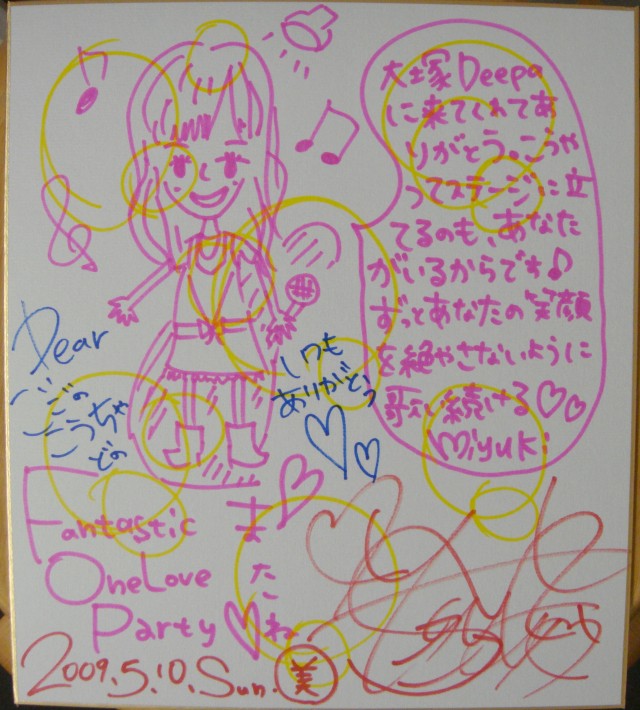 大塚Deepa
に来てくれてあ
りがとう。こうや
ってステージに立
てるのも、あなた
がいるからです♪
ずっとあなたの笑顔
を絶やさないように
歌い続ける♡♡
Miyuki
Dear
いつも
ありがとう
♡♡
Fantastic
One Love
Party♡
またね
2009.5.10.Sun.
美